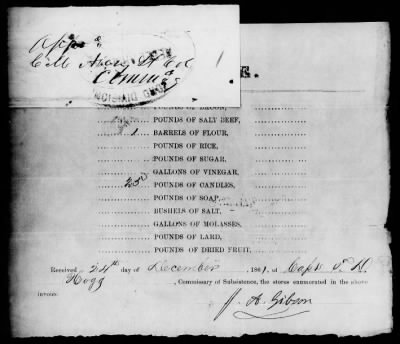 App
C M Avery Lt Col
Comdg
E.
POUNDS OF BACON,
POUNDS OF SALT BEEF,
1 BARRELS OF FLOUR,
POUNDS OF RICE,
POUNDS OF SUGAR,
GALLONS OF VINEGAR,
25 POUNDS OF CANDLES,
POUNDS OF SOAP,
BUSHELS OF SALT,
GALLONS OF MOLASSES,
POUNDS OF LARD,
POUNDS OF DRIED FRUIT,
Received 24th day of December 1861, of Capt.
Hogg, Commissary of Subsistence, the stores enumerated in the above
invoice.
J. A. Gibson